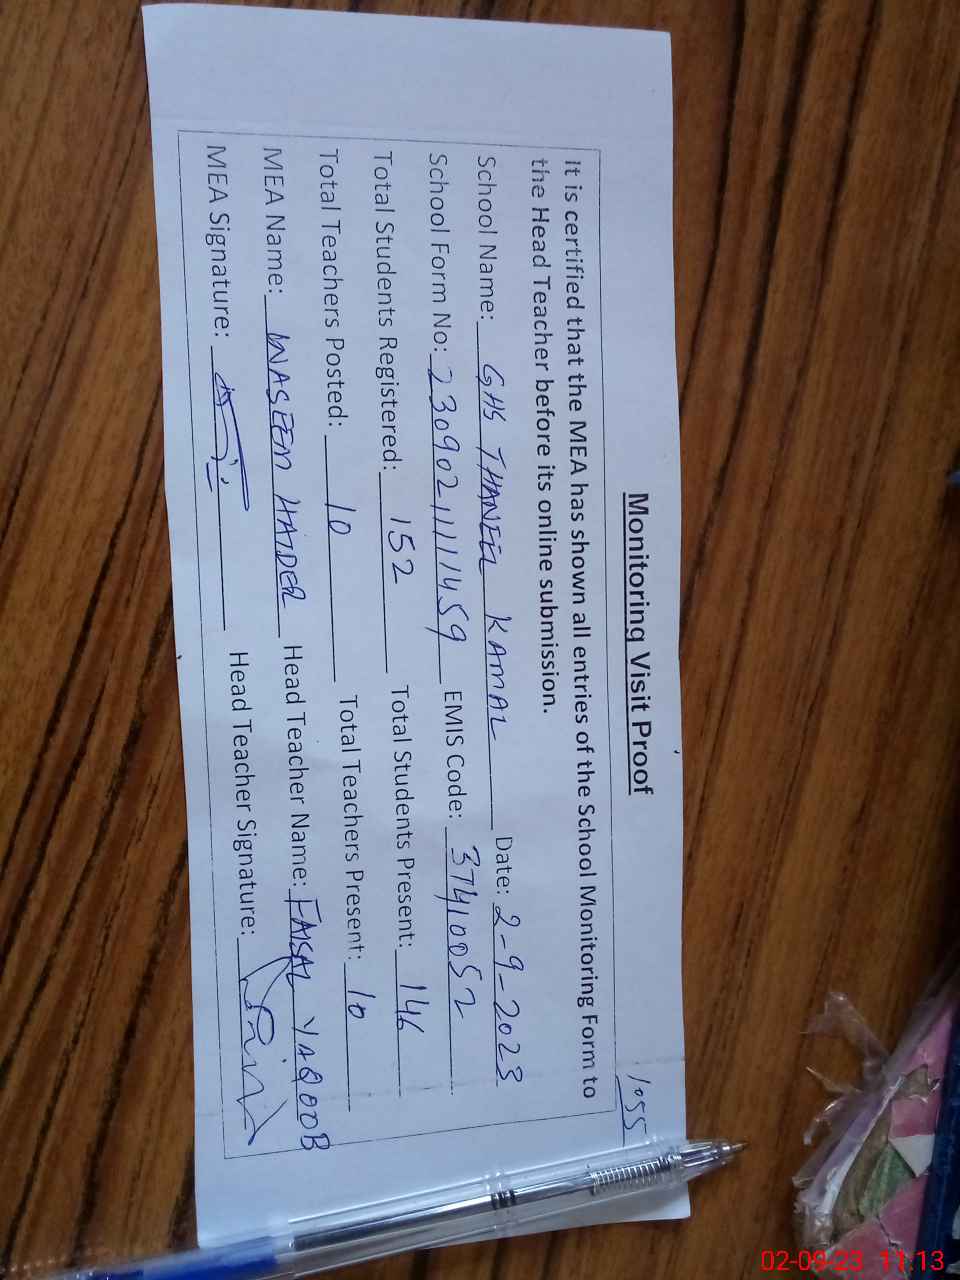 1055
Monitoring Visit Proof
It is certified that the MEA has shown all entries of the School Monitoring Form to
the Head Teacher before its online submission.
School Name: GHS THANEEL KAMAL Date: 2-9-2023
School Form No: 230902111459 EMIS Code: 37410052
Total Students Registered: 152 Total Students Present: 146
Total Teachers Posted: 10 Total Teachers Present: 10
MEA Name: WASEEM HAIDER Head Teacher Name: FAISAL YAQOOB
MEA Signature: Head Teacher Signature:
02-09-23 11:13